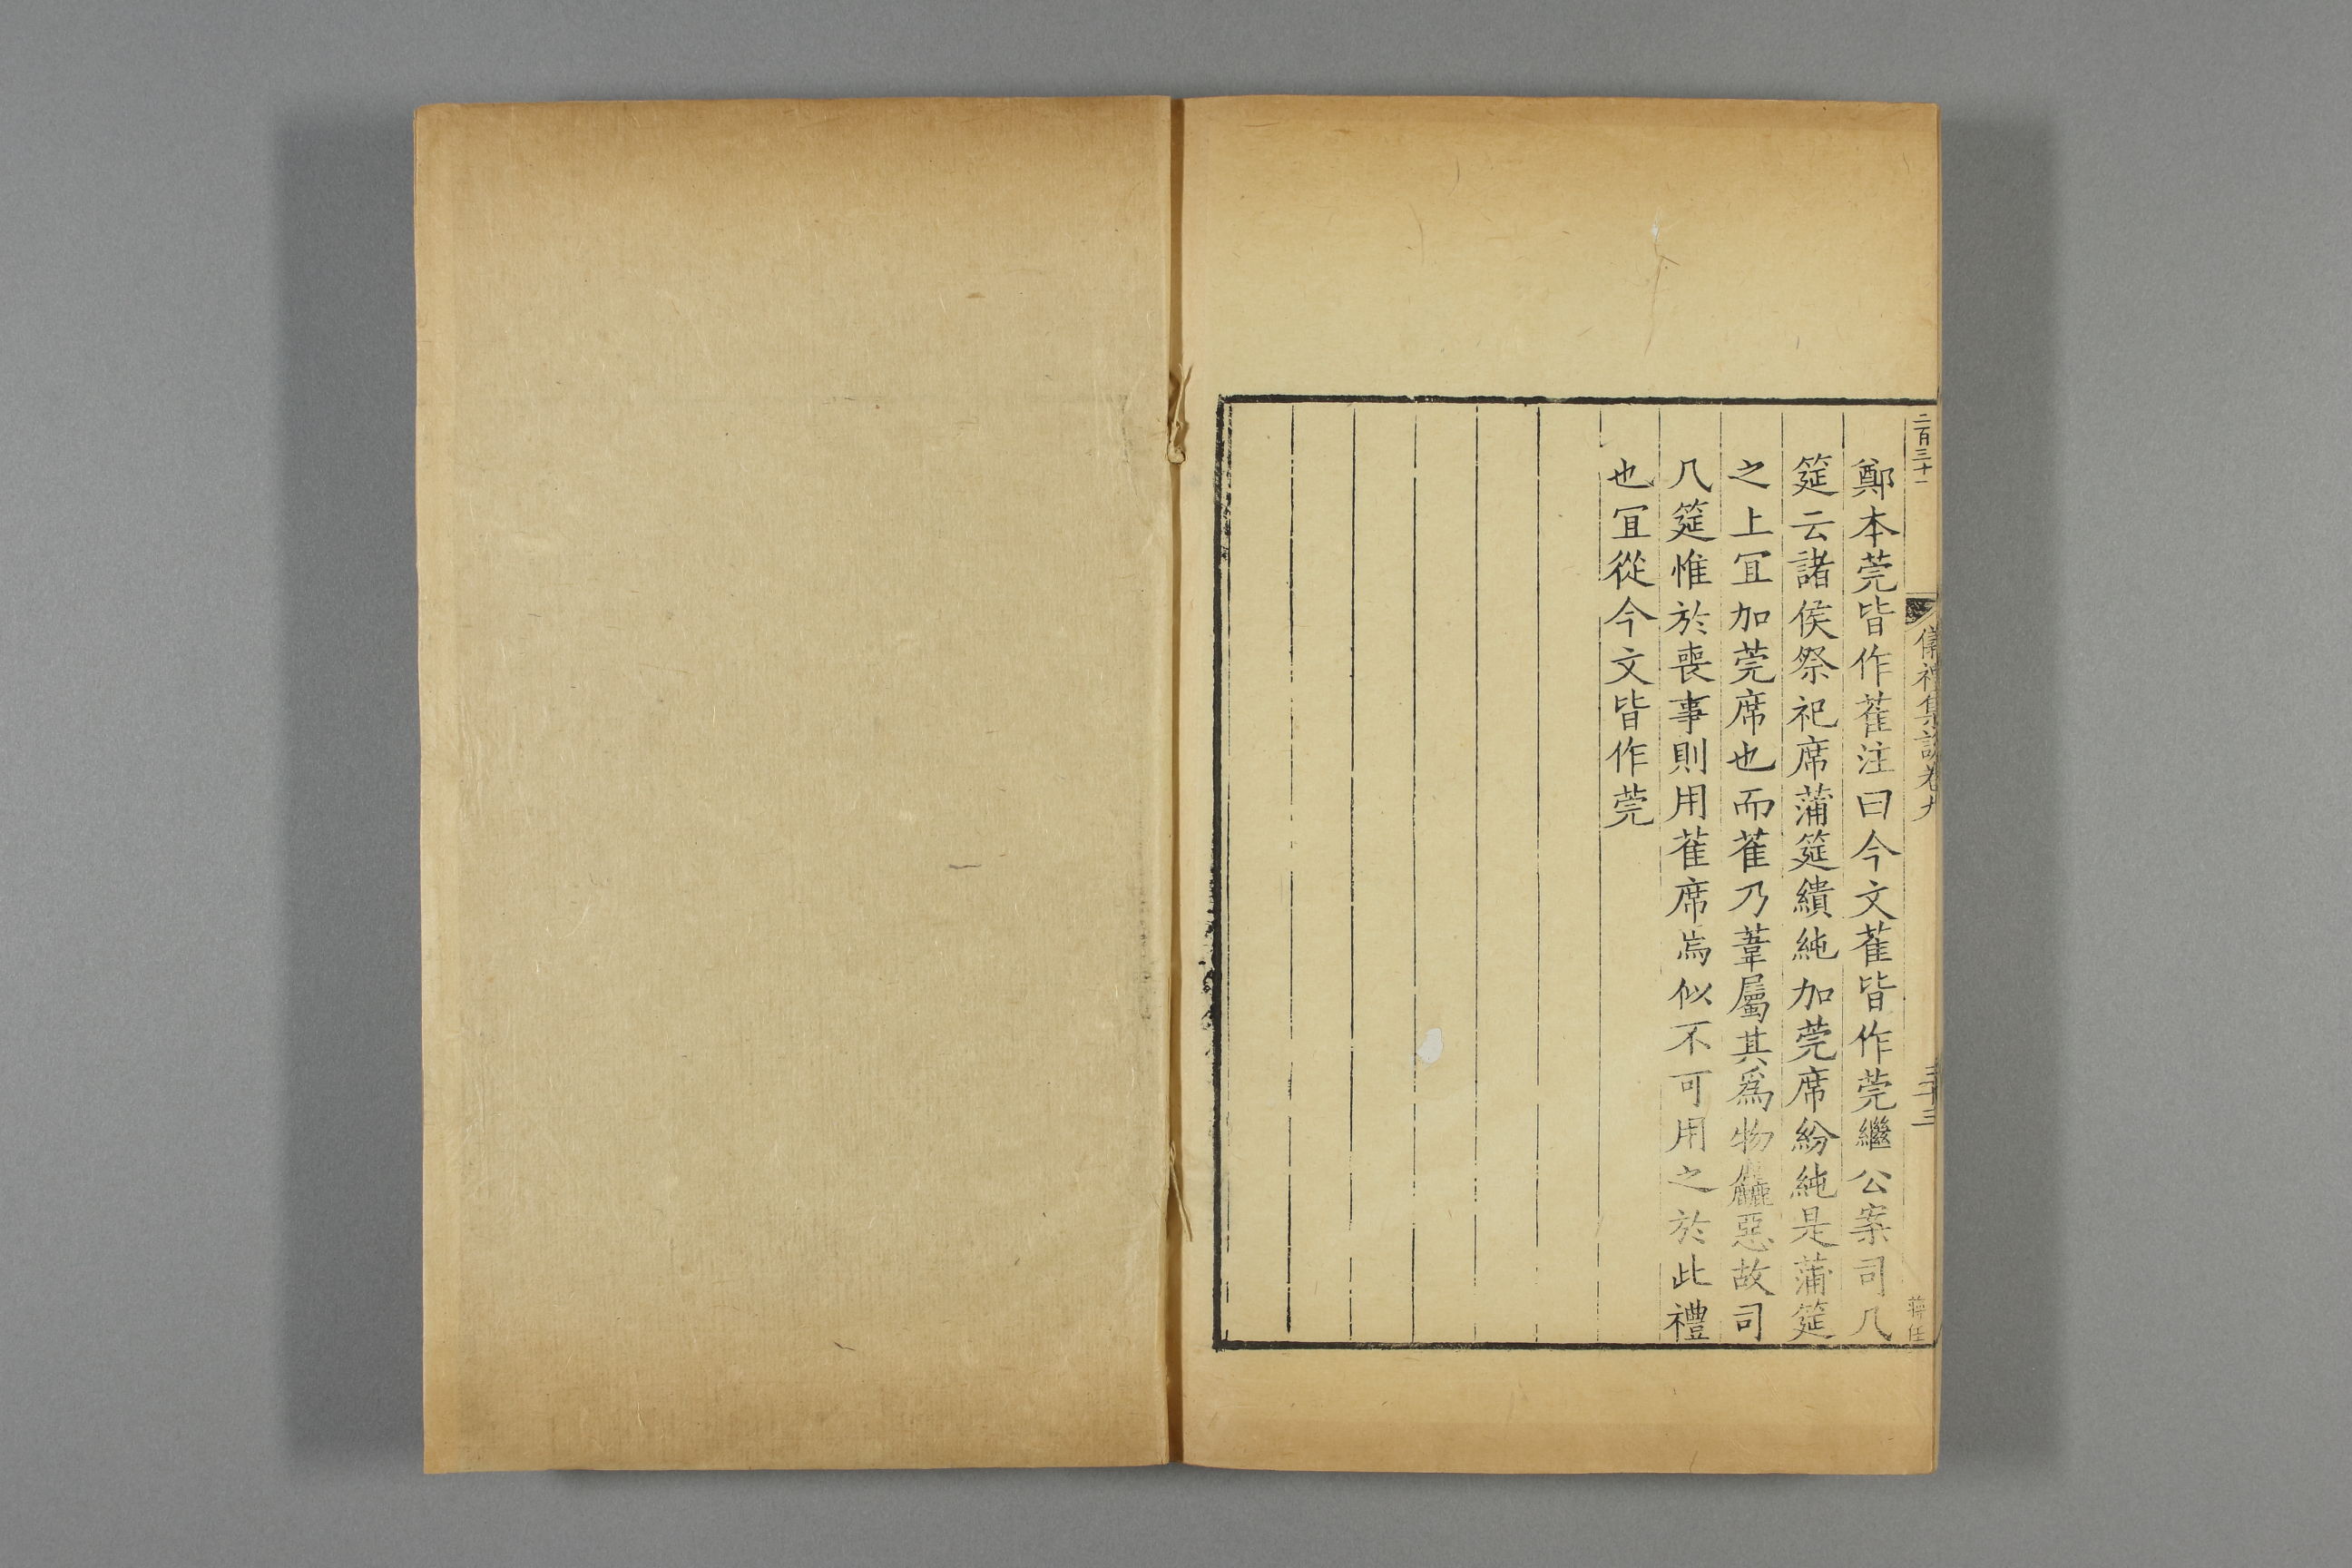 二百三十一
儀禮集說卷九
三十三
鄭本莞皆作萑注曰今文萑皆作莞繼公案司几
筵云諸侯祭祀席蒲筵繢純加莞席紛純是蒲筵
之上冝加莞席也而萑乃葦屬其爲物麤惡故司
几筵惟於喪事則用萑席焉似不可用之於此禮
也冝從今文皆作莞